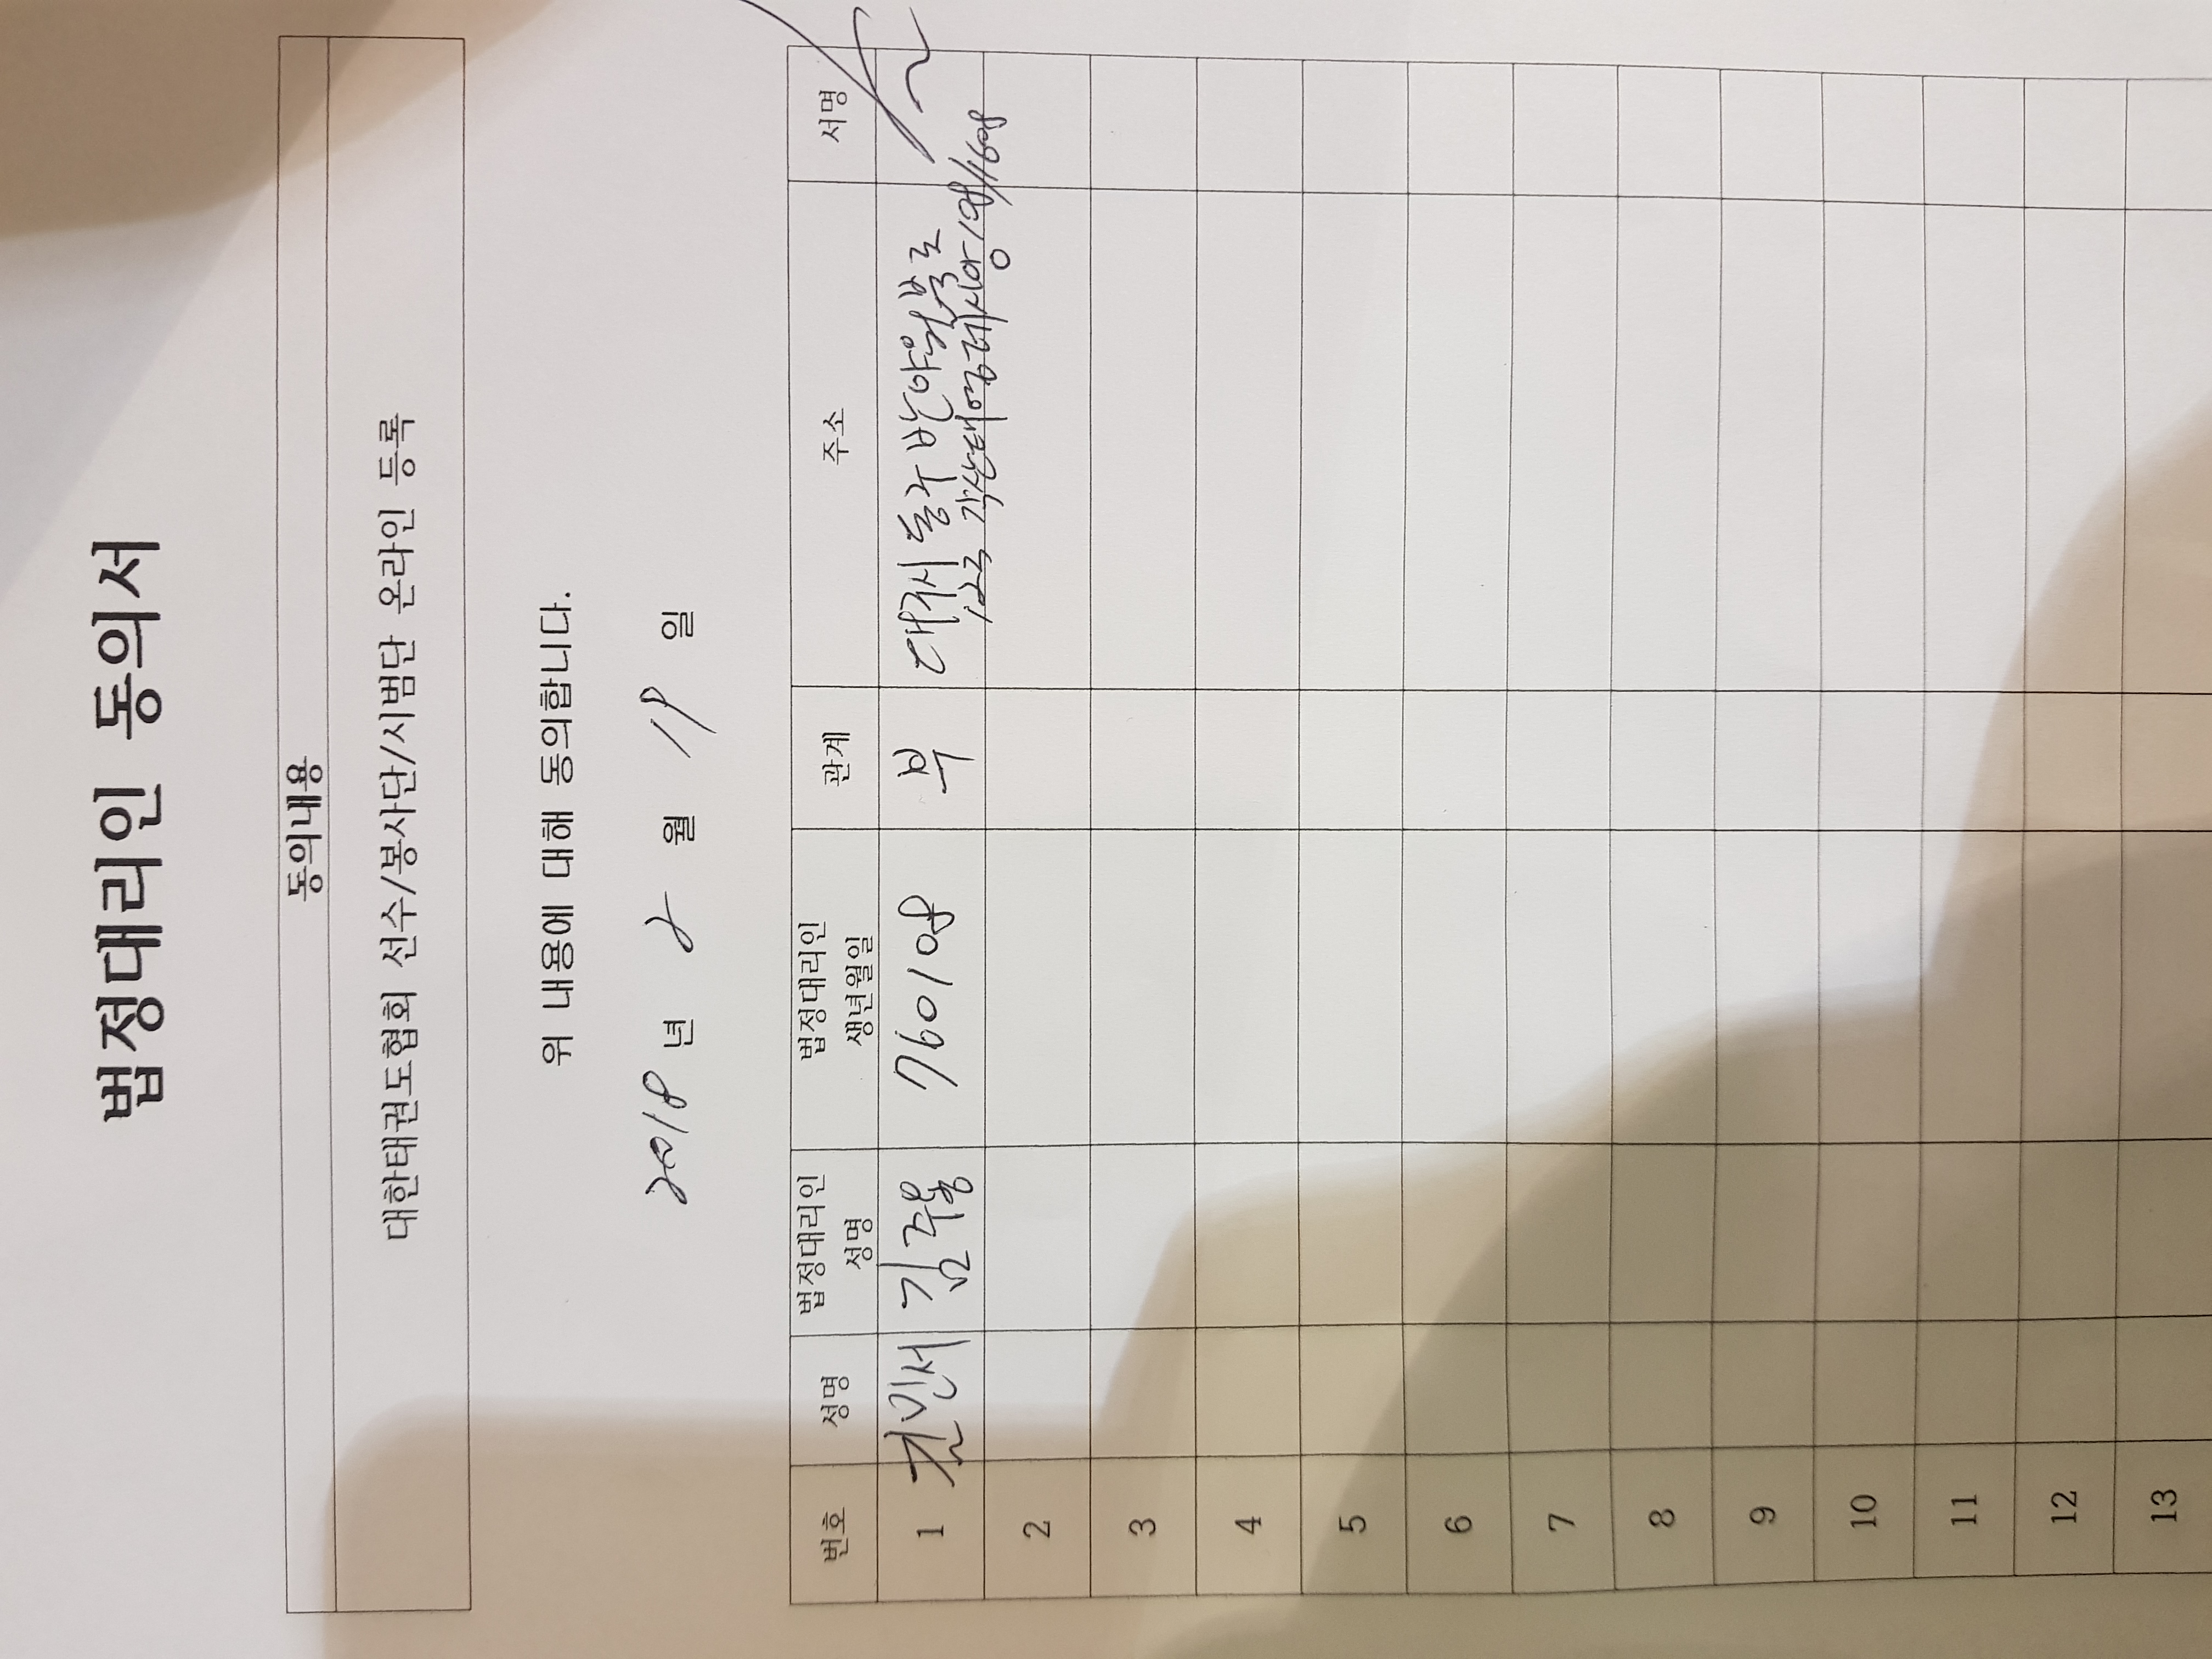 법정대리인 동의서
동의내용
대한태권도협회 선수/봉사단/시범단 온라인 등록
위 내용에 대해 동의합니다.
2018 년 2 월 19 일
번호 성명 법정대리인 성명 법정대리인 생년월일 관계 주소 서명
1 민서 760108 부 대구시 동구 반야월북로
2
3
4
5
6
7
8
9
10
11
12
13